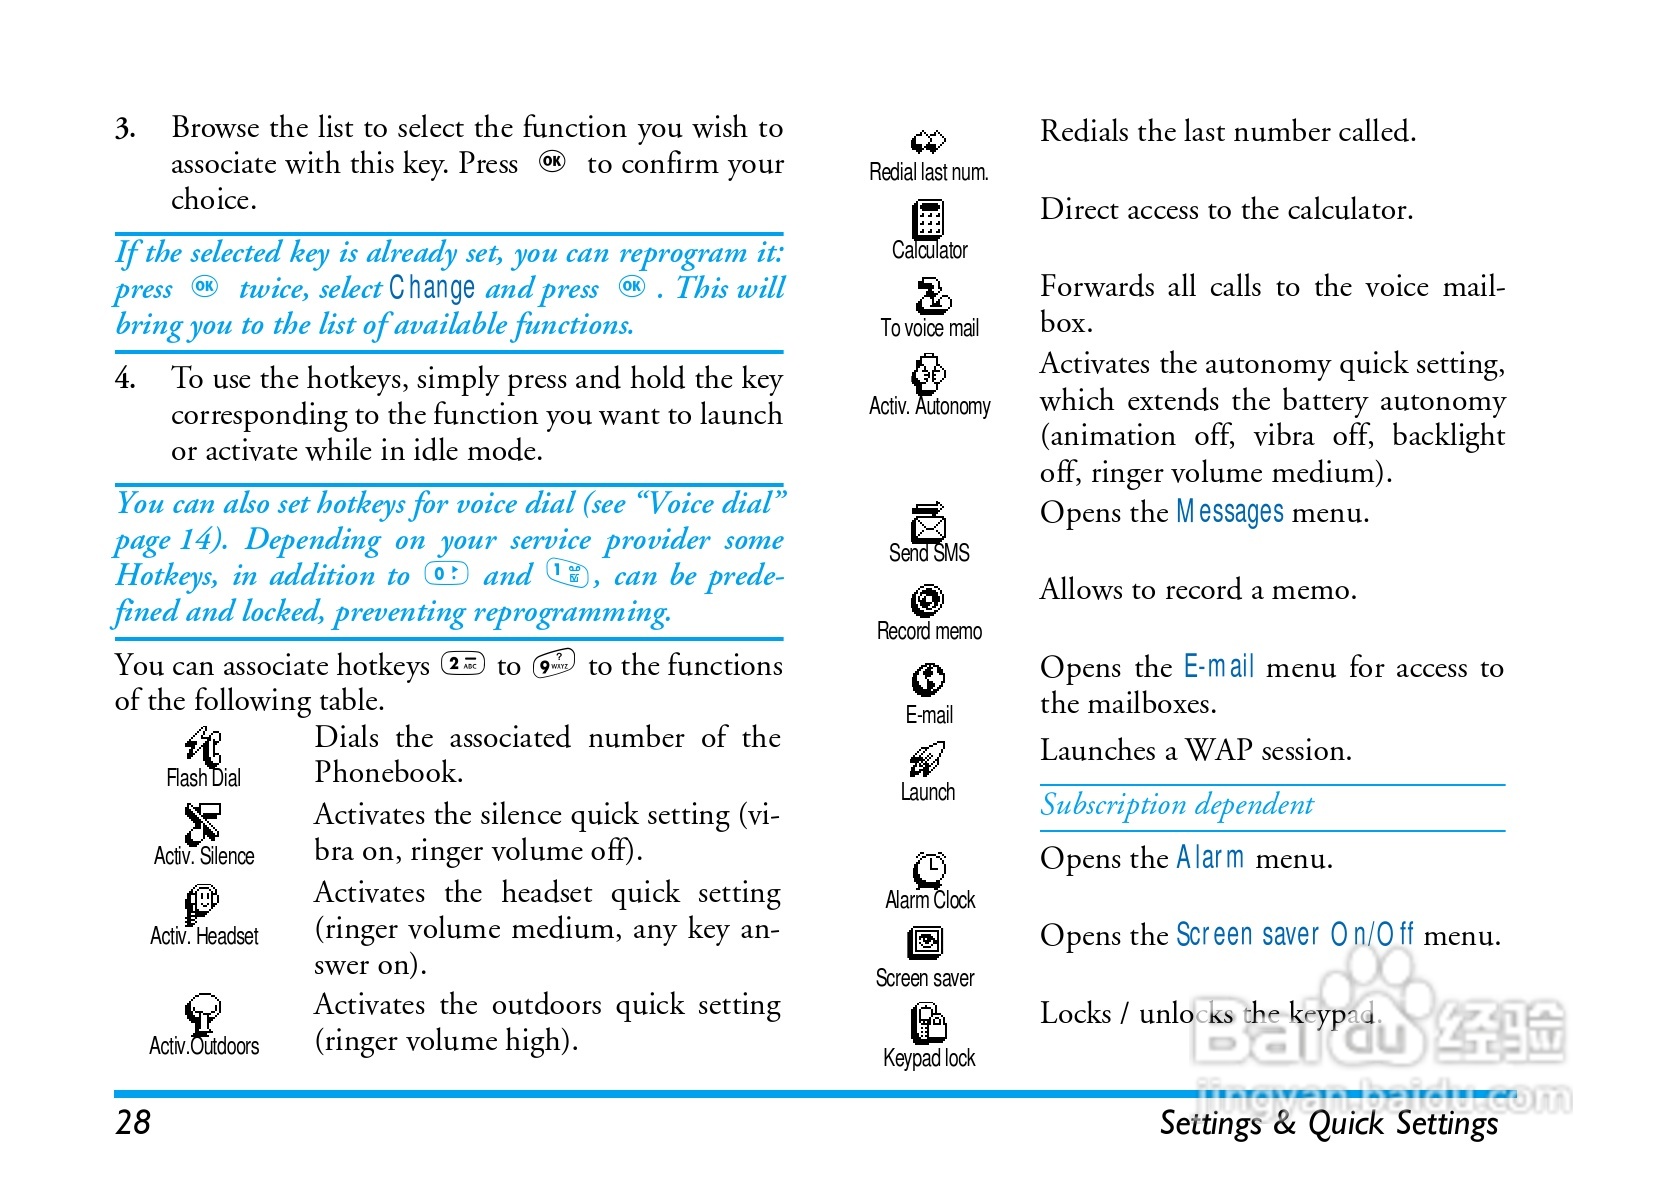 3. Browse the list to select the function you wish to
associate with this key. Press OK to confirm your
choice.
If the selected key is already set, you can reprogram it:
press OK twice, select Change and press OK . This will
bring you to the list of available functions.
4. To use the hotkeys, simply press and hold the key
corresponding to the function you want to launch
or activate while in idle mode.
You can also set hotkeys for voice dial (see “Voice dial”
page 14). Depending on your service provider some
Hotkeys, in addition to 0 and 1, can be prede-
fined and locked, preventing reprogramming.
You can associate hotkeys 2 ABC to 9 ? WXYZ to the functions
of the following table.
Flash Dial
Dials the associated number of the
Phonebook.
Activ. Silence
Activates the silence quick setting (vi-
bra on, ringer volume off).
Activ. Headset
Activates the headset quick setting
(ringer volume medium, any key an-
swer on).
Activ.Outdoors
Activates the outdoors quick setting
(ringer volume high).
Redial last num.
Redials the last number called.
Calculator
Direct access to the calculator.
To voice mail
Forwards all calls to the voice mail-
box.
Activ. Autonomy
Activates the autonomy quick setting,
which extends the battery autonomy
(animation off, vibra off, backlight
off, ringer volume medium).
Send SMS
Opens the Messages menu.
Record memo
Allows to record a memo.
E-mail
Opens the E-mail menu for access to
the mailboxes.
Launch
Launches a WAP session.
Subscription dependent
Alarm Clock
Opens the Alarm menu.
Screen saver
Opens the Screen saver On/Off menu.
Keypad lock
Locks / unlocks the keypad.
Baidu 经验
jingyan.baidu.com
28
Settings & Quick Settings